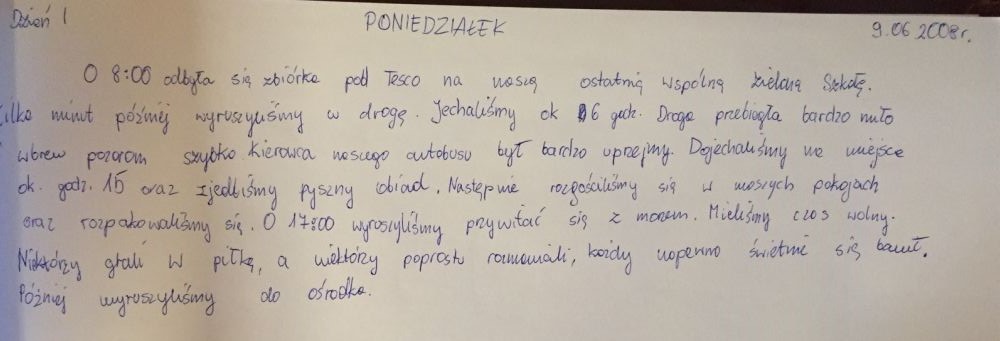 Dzień 1 PONIEDZIAŁEK 9.06 2008r.
O 8:00 odbyła się zbiórka pod Tesco na naszą ostatnią wspólną Zieloną Szkołę.
Kilka minut później wyruszyliśmy w drogę. Jechaliśmy ok 6 godz. Droga przebiegła bardzo miło
wbrew pozorom szybko kierowca naszego autobusu był bardzo uprzejmy. Dojechaliśmy na miejsce
ok. godz. 15 oraz zjedliśmy pyszny obiad. Następnie rozgościliśmy się w naszych pokojach
oraz rozpakowaliśmy się. O 17:00 wyruszyliśmy przywitać się z morzem. Mieliśmy czas wolny.
Niektórzy grali w piłkę, a niektórzy poprostu rozmawiali, każdy napewno świetnie się bawił.
Później wyruszyliśmy do ośrodka.